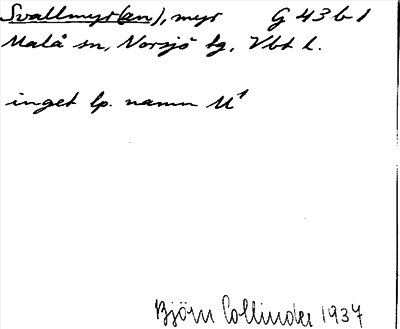 Svallmyr(an), myr G 43 b 1
Malå sn, Norsjö tg, Vbt l.
inget lp. namn M¹
Björn Collinder 1937